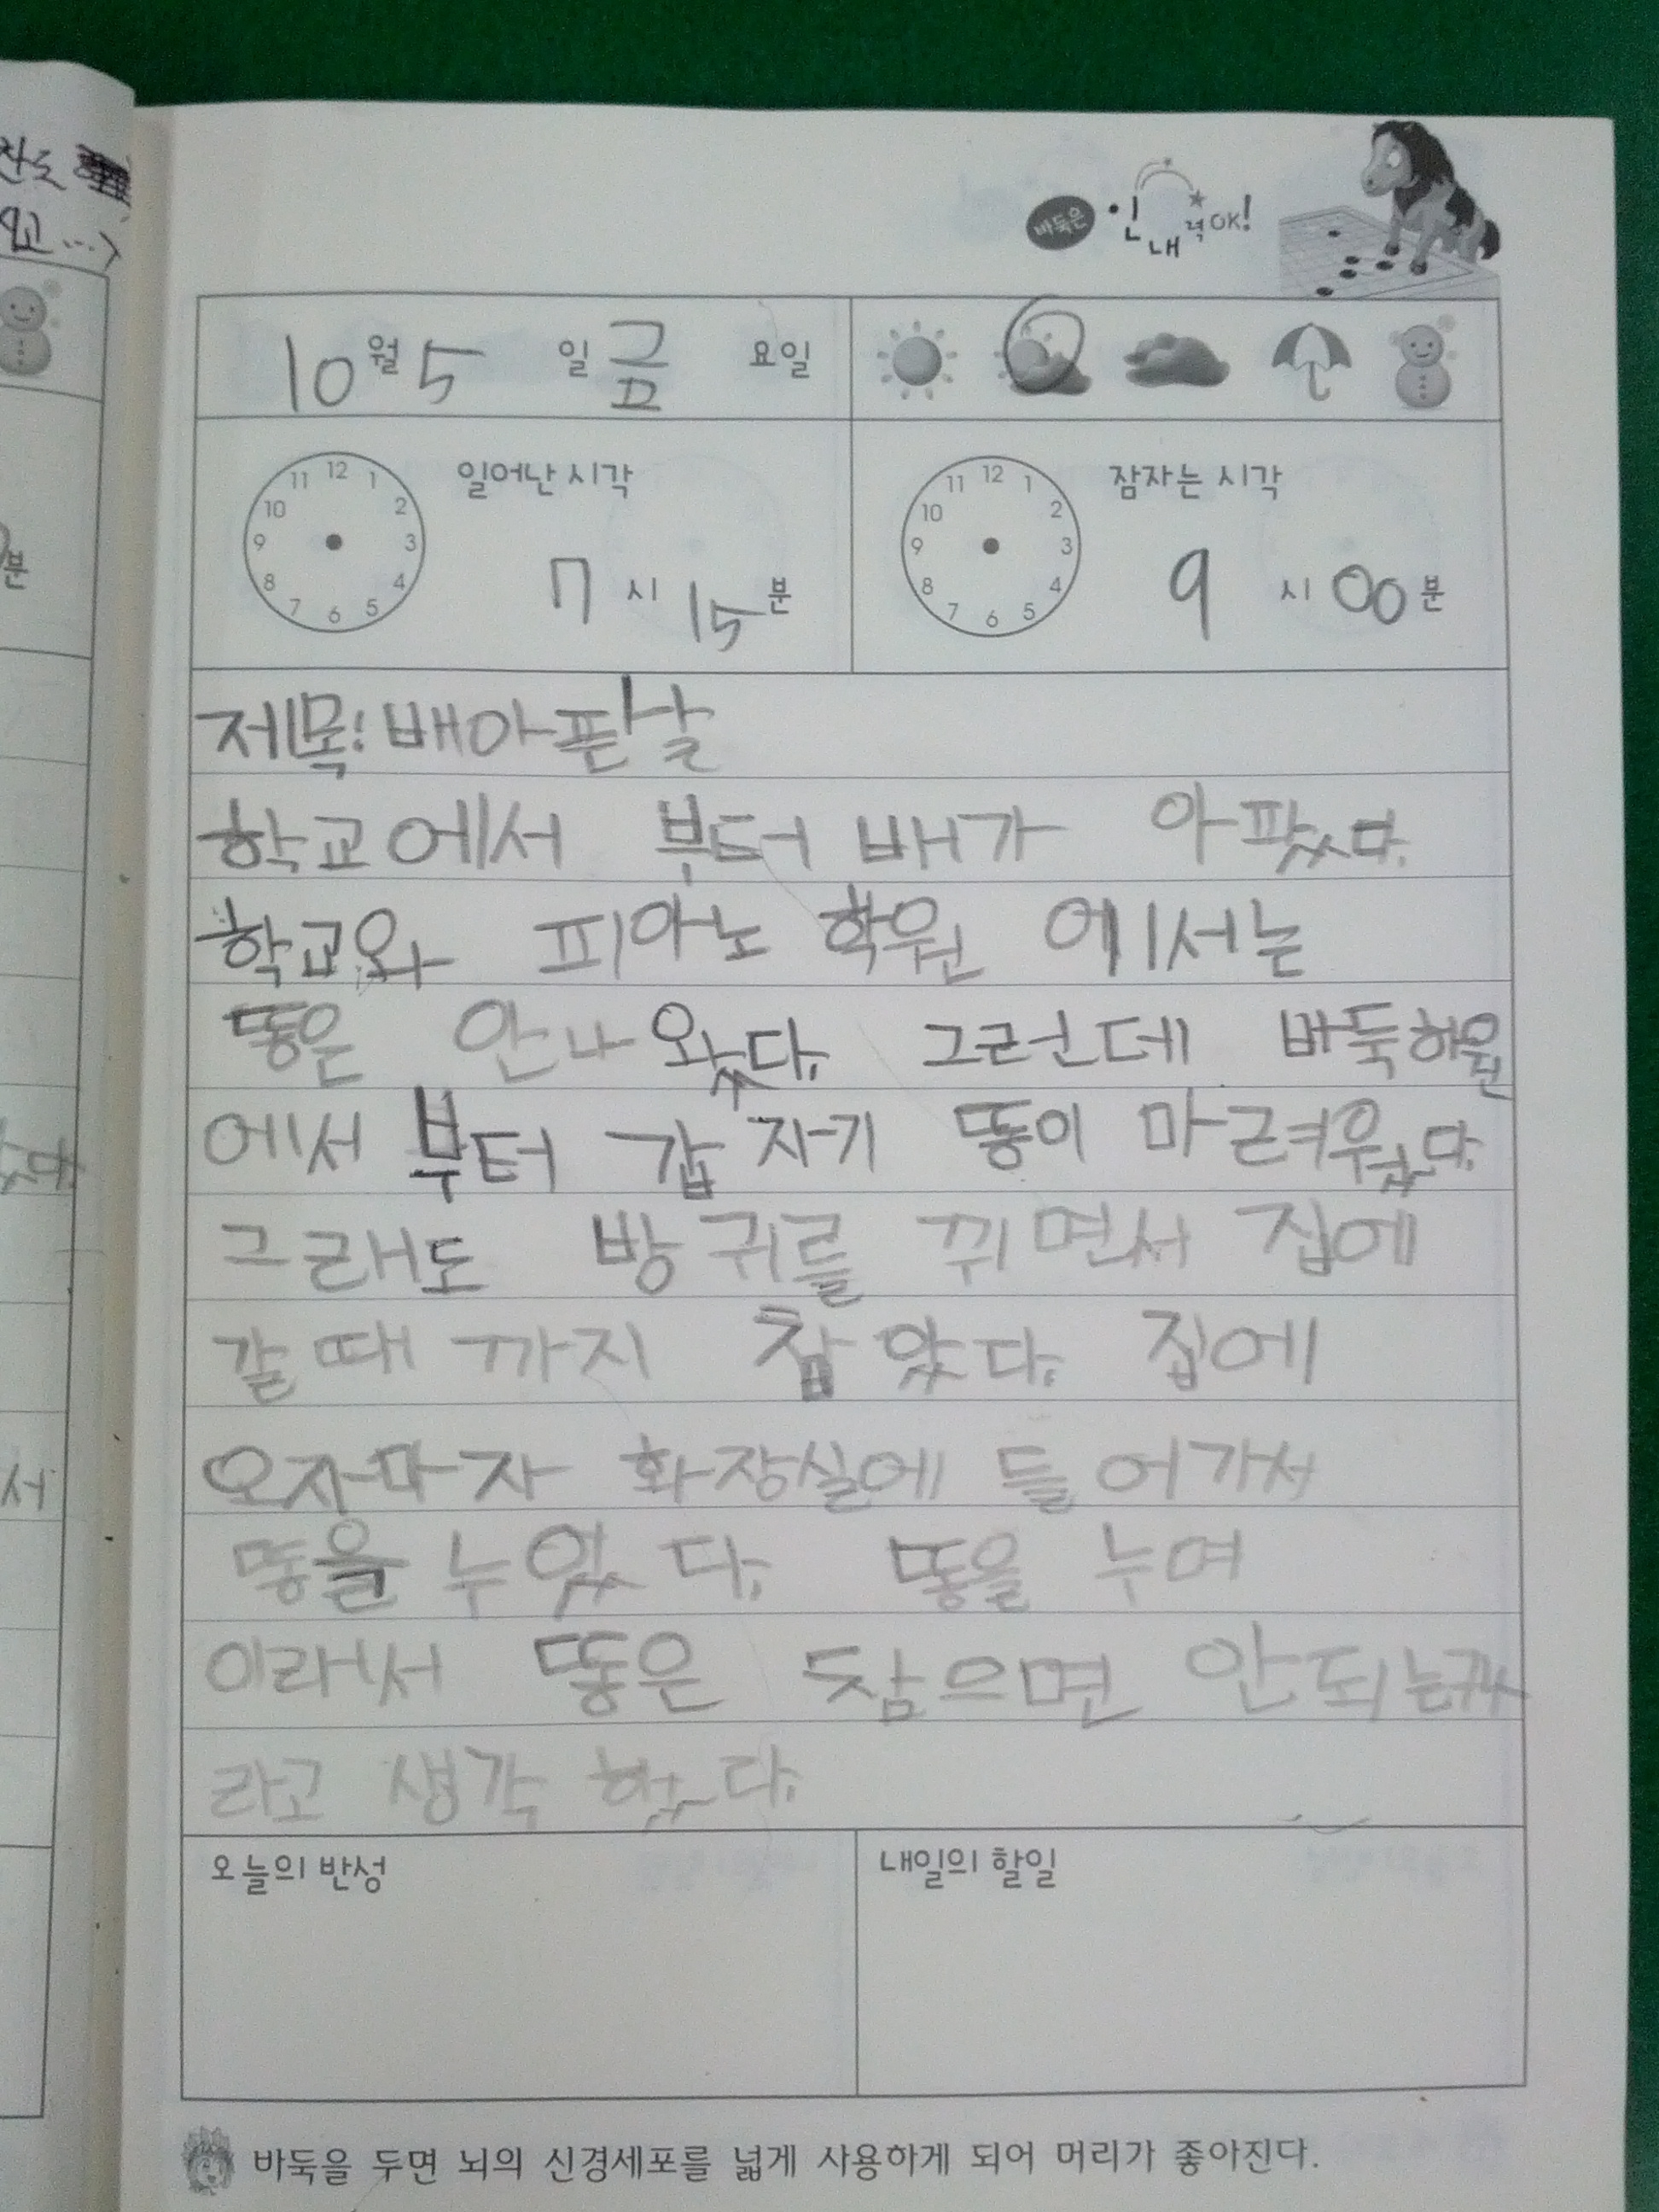 찬도
있고...>
바둑은 인내력 OK!
10월 5일 금요일
일어난 시각
11 12 1
10 2
9 3
8 4
7 6 5
7시 15분
잠자는 시각
11 12 1
10 2
9 3
8 4
7 6 5
9시 00분
분
제목: 배아픈날
학교에서 부터 배가 아팠다.
학교와 피아노 학원 에서는
똥은 안나왔다. 그런데 바둑하원
에서 부터 갑자기 똥이 마려웠다.
그래도 방귀를 뀌면서 집에
갈때까지 참았다. 집에
오자마자 화장실에 들어가서
서
똥을 누었다. 똥을 누며
이래서 똥은 참으면 안되는거
라고 생각 했다.
오늘의 반성
내일의 할일
바둑을 두면 뇌의 신경세포를 넓게 사용하게 되어 머리가 좋아진다.